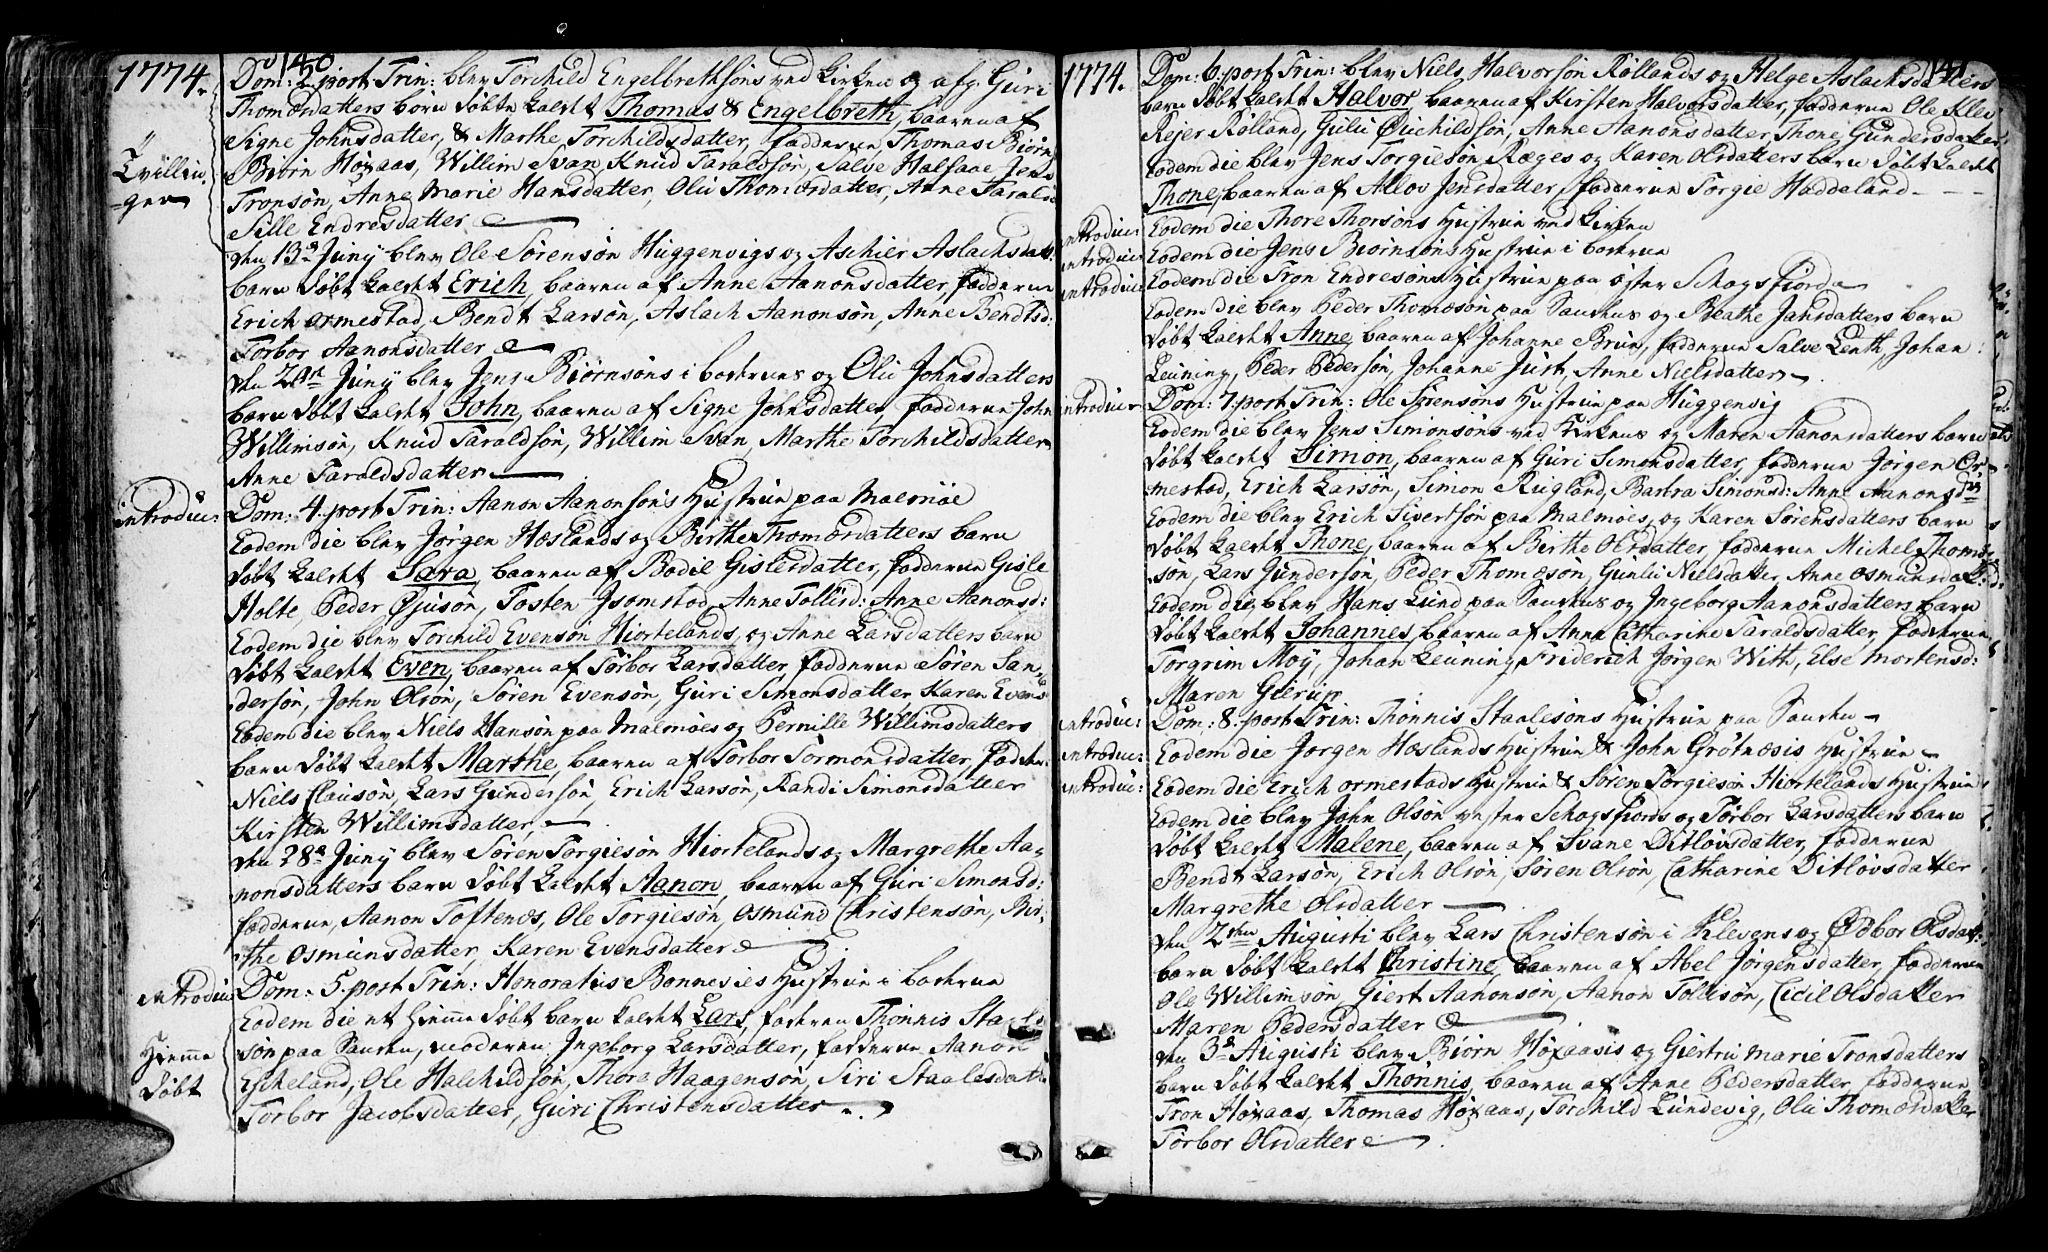 140
1774.
Dom: 2 post Trin: blev Torchild Engelbrethsøns ved Kirken og afg. Guri
Thomæsdatters børn døbte kaldet Thomas & Engelbreth, baaren af
Signe Johnsdatter, & Marthe Torchildsdatter, fadderne Thomas Biørn
Tvillin-
ger
Biørn Høxaas, Willim Svan, Knud Taraldsøn, Salve Halsaae, Jens
Tronsøn, Anne Marie Hansdatter, Olü Thomæsdatter, Anne Tarald
Sille Endresdatter
den 13de Juny blev Ole Sørensøn Huggenvigs og Aschier Aslachsdatt:
barn døbt kaldet Erich, baaren af Anne Aanonsdatter, fadderne
Erich Ormestad, Bendt Larsøn, Aslach Aanonsøn, Anne Bendtsd:
Torbor Aanonsdatter
den Juny blev Jens Biørnsøns i boerne og Olü Johnsdatters
barn døbt kaldet John, baaren af Signe Johnsdatter, fadderne John
Willimsøn, Knud Taraldsøn, Willim Svan, Marthe Torchildsdatter
Anne Taraldsdatter
introduc: Dom: 4. post Trin: Aanon Aanonsøns Hustrue paa Malmøe
Eodem die blev Jørgen Hæslands og Birthe Thomæsdatters barn
døbt kaldet Sara, baaren af Bodil Gislesdatter, fadderne Gisle
Holte, Peder Øjusøn, Tosten Jsomstad, Anne Tollisd: Anne Aanonsd:
Eodem die blev Torchild Evensøn Hiortelands og Anne Larsdatters barn
døbt kaldet Even, baaren af Torbor Larsdatter, fadderne Søren San-
dersøn, John Olsøn, Søren Evensøn, Guri Simonsdatter Karen Evens
Eodem die blev Niels Hansøn paa Malmøes og Pernille Willimsdatters
barn døbt kaldet Marthe, baaren af Torbor Tormonsdatter, fadder:
Niels Clausøn, Lars Gundersøn, Erich Larsøn, Randi Simonsdatter
Kirsten Willimsdatter
den 28de Juny blev Søren Torgiesøn Hiortelands og Margrethe Aa-
nonsdatters barn døbt kaldet Aanon, baaren af Guri Simonsd:
fadderne, Aanon Toftenes, Ole Torgiesøn, Osmund Christensøn, Bir-
the Osmunsdatter, Karen Evensdatter
introduc: Dom: 5. post Trin: Honoratius Bonnevies Hustrue i boerne
Hiemme
døbt
Eodem die et hiemme døbt barn kaldet Lars, faderen Thønnis Staale
søn paa Sanden, moderen Ingeborg Larsdatter, fadderne Aanon
Escheland, Ole Halchildsøn, Thore Haagensøn, Siri Staalesdatt.
Torbor Jacobsdatter, Guri Christensdatter
141
1774.
Dom: 6. post Trin: blev Niels Halvorsøn Røllands og Helge Aslachsdatters
barn døbt kaldet Halvor, baaren af Kirsten Halvorsdatter, fadderne Ole Klev
Rejer Rølland, Anne Aanonsdatter, Thone Gundersdatter
Eodem die blev Jens Torgiesøn Ræges og Karen Olsdatters barn døbt kaldet
Thone, baaren af Allov Jensdatter, fadderne Torgie Haddeland
introduc: Eodem die Thore Thorsøns Hustrue ved Kirken
introduc: Eodem die Jens Biørnsøns Hustrue i boerne
introduc: Eodem die Tron Endresøns Hustrue paa øster Schogsfiord
Eodem die blev Peder Thomæsøn paa Sandens og Beathe Jansdatters barn
døbt kaldet Anne, baaren af Johanne Brun, fadderne Salve Lenth, Johan
Leuning, Peder Pedersøn, Johanne Just, Anne Nielsdatter
introduc: Dom: 7. post Trin: Ole Sørensøns Hustrue paa Huggenvig
Eodem die blev Jens Simonsøns ved Kirkens og Maren Aanonsdatters barn
døbt kaldet Simon, baaren af Guri Simonsdatter, fadderne Jørgen Or-
mestad, Erich Larsøn, Simon Rugland, Barbra Simonsd: Anne Aanonsdtr
Eodem die blev Erich Sivertsøn paa Malmøes, og Karen Sørensdatters barn
døbt kaldet Thone, baaren af Birthe Olsdatter, fadderne Michel Thomæ-
søn, Lars Gundersøn, Peder Thomæsøn, Gunlü Nielsdatter, Anne Osmunsdatt:
Eodem die blev Hans Lund paa Sandens og Ingeborg Aanonsdatters barn
døbt kaldet Johannes, baaren af Anne Catharine Taraldsdatter, fadderne
Torgrim Moÿ, Johan Leuning, Friderich Jørgen With, Else Mortensd:
Maren Gierup
introduc: Dom: 8. post Trin: Thønnis Staalesøns Hustrue paa Sanden
introduc: Eodem die Jørgen Hæslands Hustrue & John Grøtnæsis Hustrue
introduc: Eodem die Erich Ormestads Hustrue & Søren Torgiesøn Hiortelands Hustrue
Eodem die blev John Olsøn vester Schogsfiords og Torbor Larsdatters barn
døbt kaldet Malene, baaren af Svane Ditløvsdatter, fadderne
Bendt Larsøn, Erich Olsøn, Søren Olsøn, Catharine Ditløvsdatter
Margrethe Olsdatter
den 2den Augusti blev Lars Christensøn i Klevens og Ødbor Olsdat:
barn døbt kaldet Christine, baaren af Abel Jørgensdatter, fadderne
Ole Willimsøn, Giert Aanonsøn, Aanon Tollisøn, Cicil Olsdatter
Maren Pedersdatter
den 3de Augusti blev Biørn Høxaasis og Giertru Marie Tronsdatters
barn døbt kaldet Thønnis, baaren af Anne Pedersdatter, fadderne
Tron Høxaas, Thomas Høxaas, Torchild Lundevig, Olü Thomæsdatter
Torbor Olsdatter